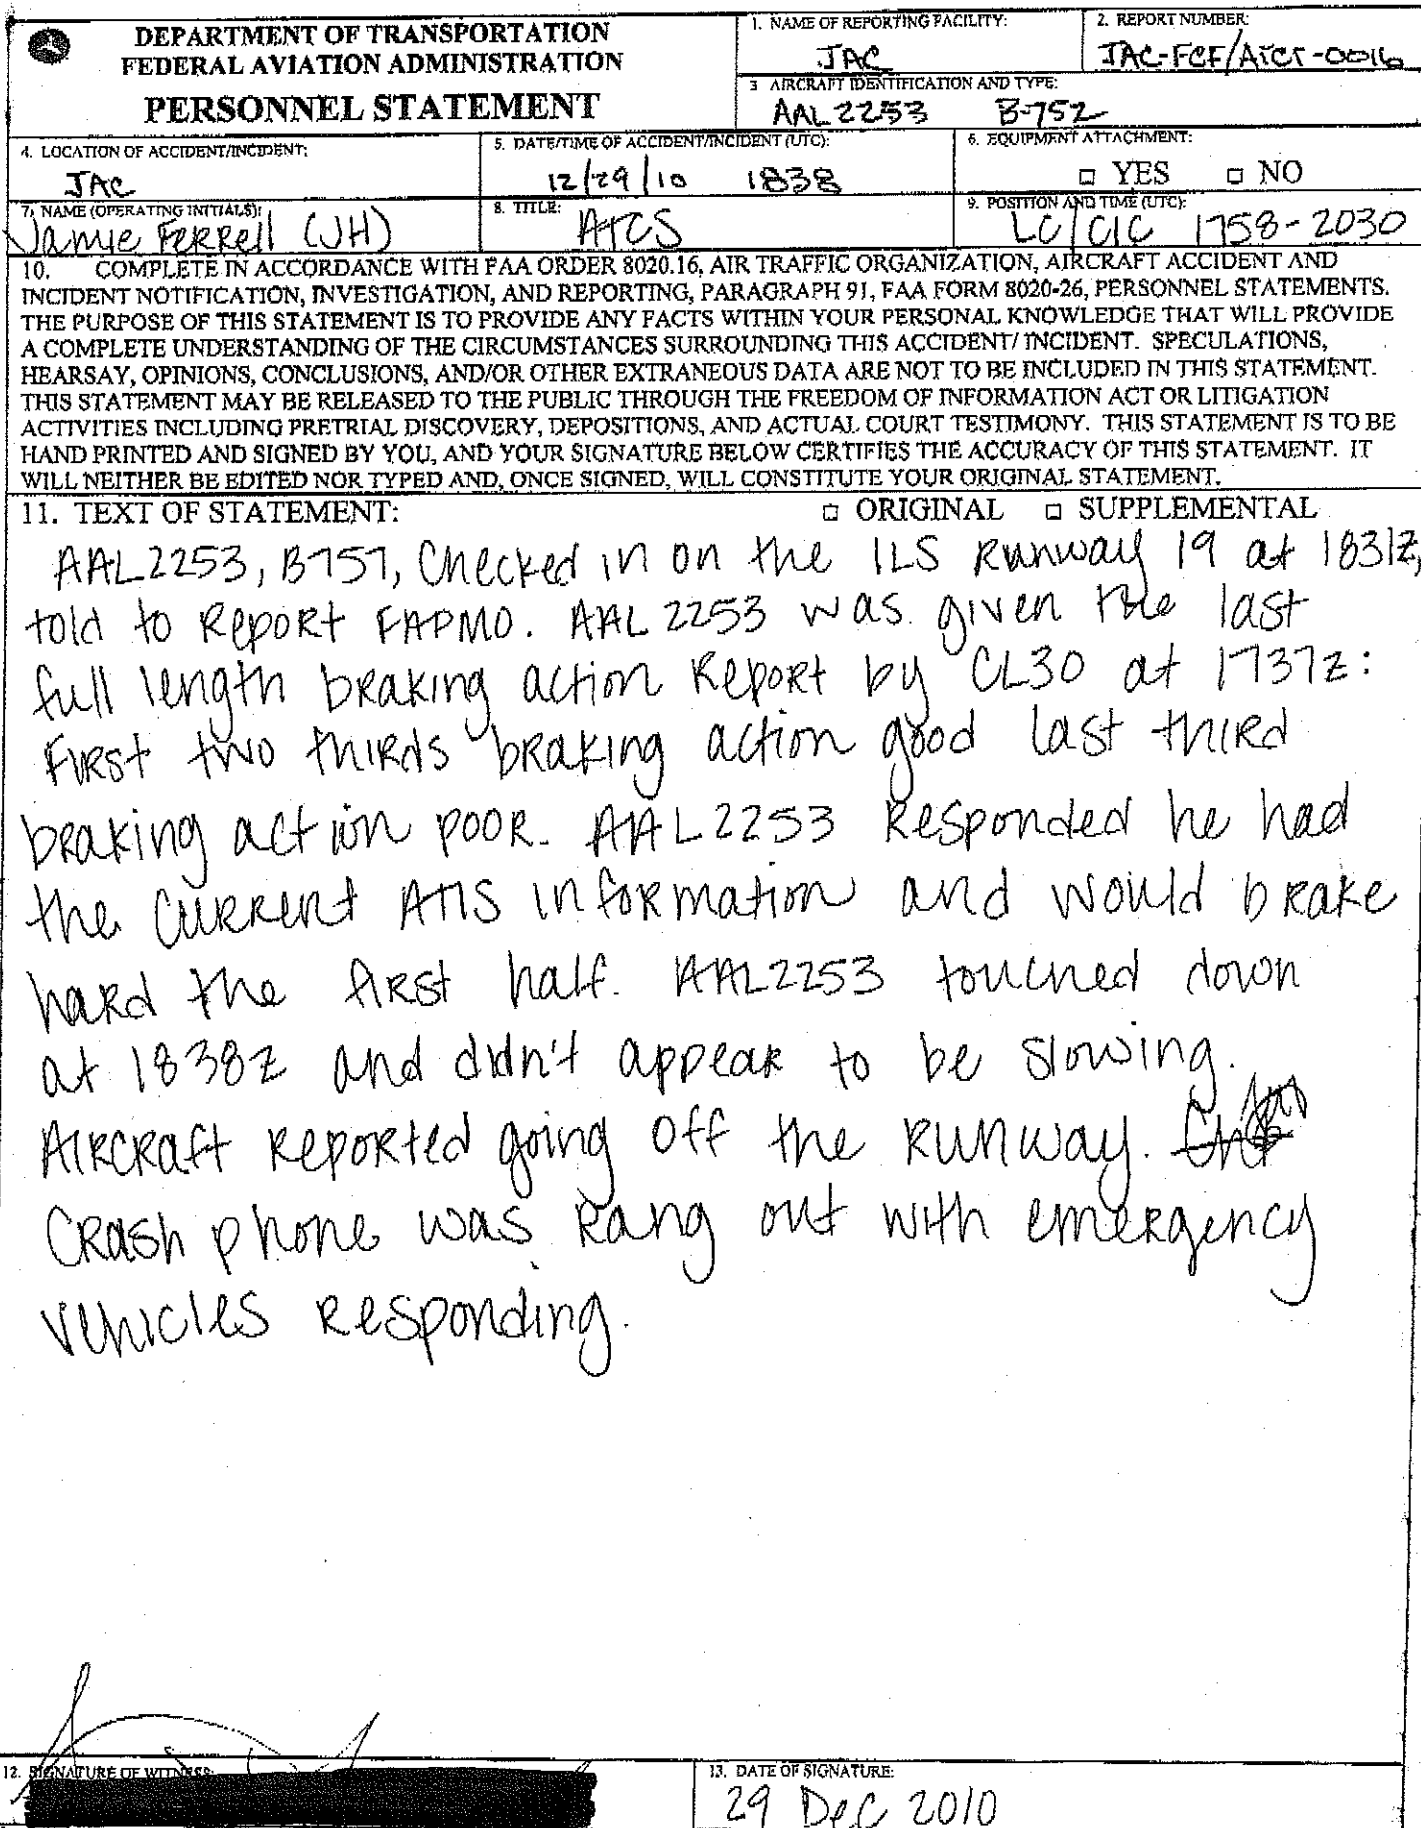 DEPARTMENT OF TRANSPORTATION
FEDERAL AVIATION ADMINISTRATION
PERSONNEL STATEMENT
1. NAME OF REPORTING FACILITY:
JAC
2. REPORT NUMBER:
JAC-FCF/ATCT-0016
3 AIRCRAFT IDENTIFICATION AND TYPE:
AAL2253 B-752
4. LOCATION OF ACCIDENT/INCIDENT:
JAC
5. DATE/TIME OF ACCIDENT/INCIDENT (UTC):
12/29/10 1838
6. EQUIPMENT ATTACHMENT:
□ YES □ NO
7. NAME (OPERATING INITIALS):
Jamie Ferrell (JH)
8. TITLE:
ATCS
9. POSITION AND TIME (UTC):
LC/CIC 1758-2030
10. COMPLETE IN ACCORDANCE WITH FAA ORDER 8020.16, AIR TRAFFIC ORGANIZATION, AIRCRAFT ACCIDENT AND
INCIDENT NOTIFICATION, INVESTIGATION, AND REPORTING, PARAGRAPH 91, FAA FORM 8020-26, PERSONNEL STATEMENTS.
THE PURPOSE OF THIS STATEMENT IS TO PROVIDE ANY FACTS WITHIN YOUR PERSONAL KNOWLEDGE THAT WILL PROVIDE
A COMPLETE UNDERSTANDING OF THE CIRCUMSTANCES SURROUNDING THIS ACCIDENT/ INCIDENT. SPECULATIONS,
HEARSAY, OPINIONS, CONCLUSIONS, AND/OR OTHER EXTRANEOUS DATA ARE NOT TO BE INCLUDED IN THIS STATEMENT.
THIS STATEMENT MAY BE RELEASED TO THE PUBLIC THROUGH THE FREEDOM OF INFORMATION ACT OR LITIGATION
ACTIVITIES INCLUDING PRETRIAL DISCOVERY, DEPOSITIONS, AND ACTUAL COURT TESTIMONY. THIS STATEMENT IS TO BE
HAND PRINTED AND SIGNED BY YOU, AND YOUR SIGNATURE BELOW CERTIFIES THE ACCURACY OF THIS STATEMENT. IT
WILL NEITHER BE EDITED NOR TYPED AND, ONCE SIGNED, WILL CONSTITUTE YOUR ORIGINAL STATEMENT.
11. TEXT OF STATEMENT: □ ORIGINAL □ SUPPLEMENTAL
AAL2253, B757, Checked in on the ILS Runway 19 at 1831z,
told to Report FAPMO. AAL 2253 was given the last
full length braking action Report by CL30 at 1737z:
First two thirds braking action good last third
braking action poor. AAL2253 Responded he had
the current ATIS information and would brake
hard the first half. AAL2253 touched down
at 1838z and didn't appear to be slowing.
Aircraft reported going off the runway.
Crash phone was rang out with emergency
vehicles responding.
12. SIGNATURE OF WITNESS:
13. DATE OF SIGNATURE:
29 Dec 2010